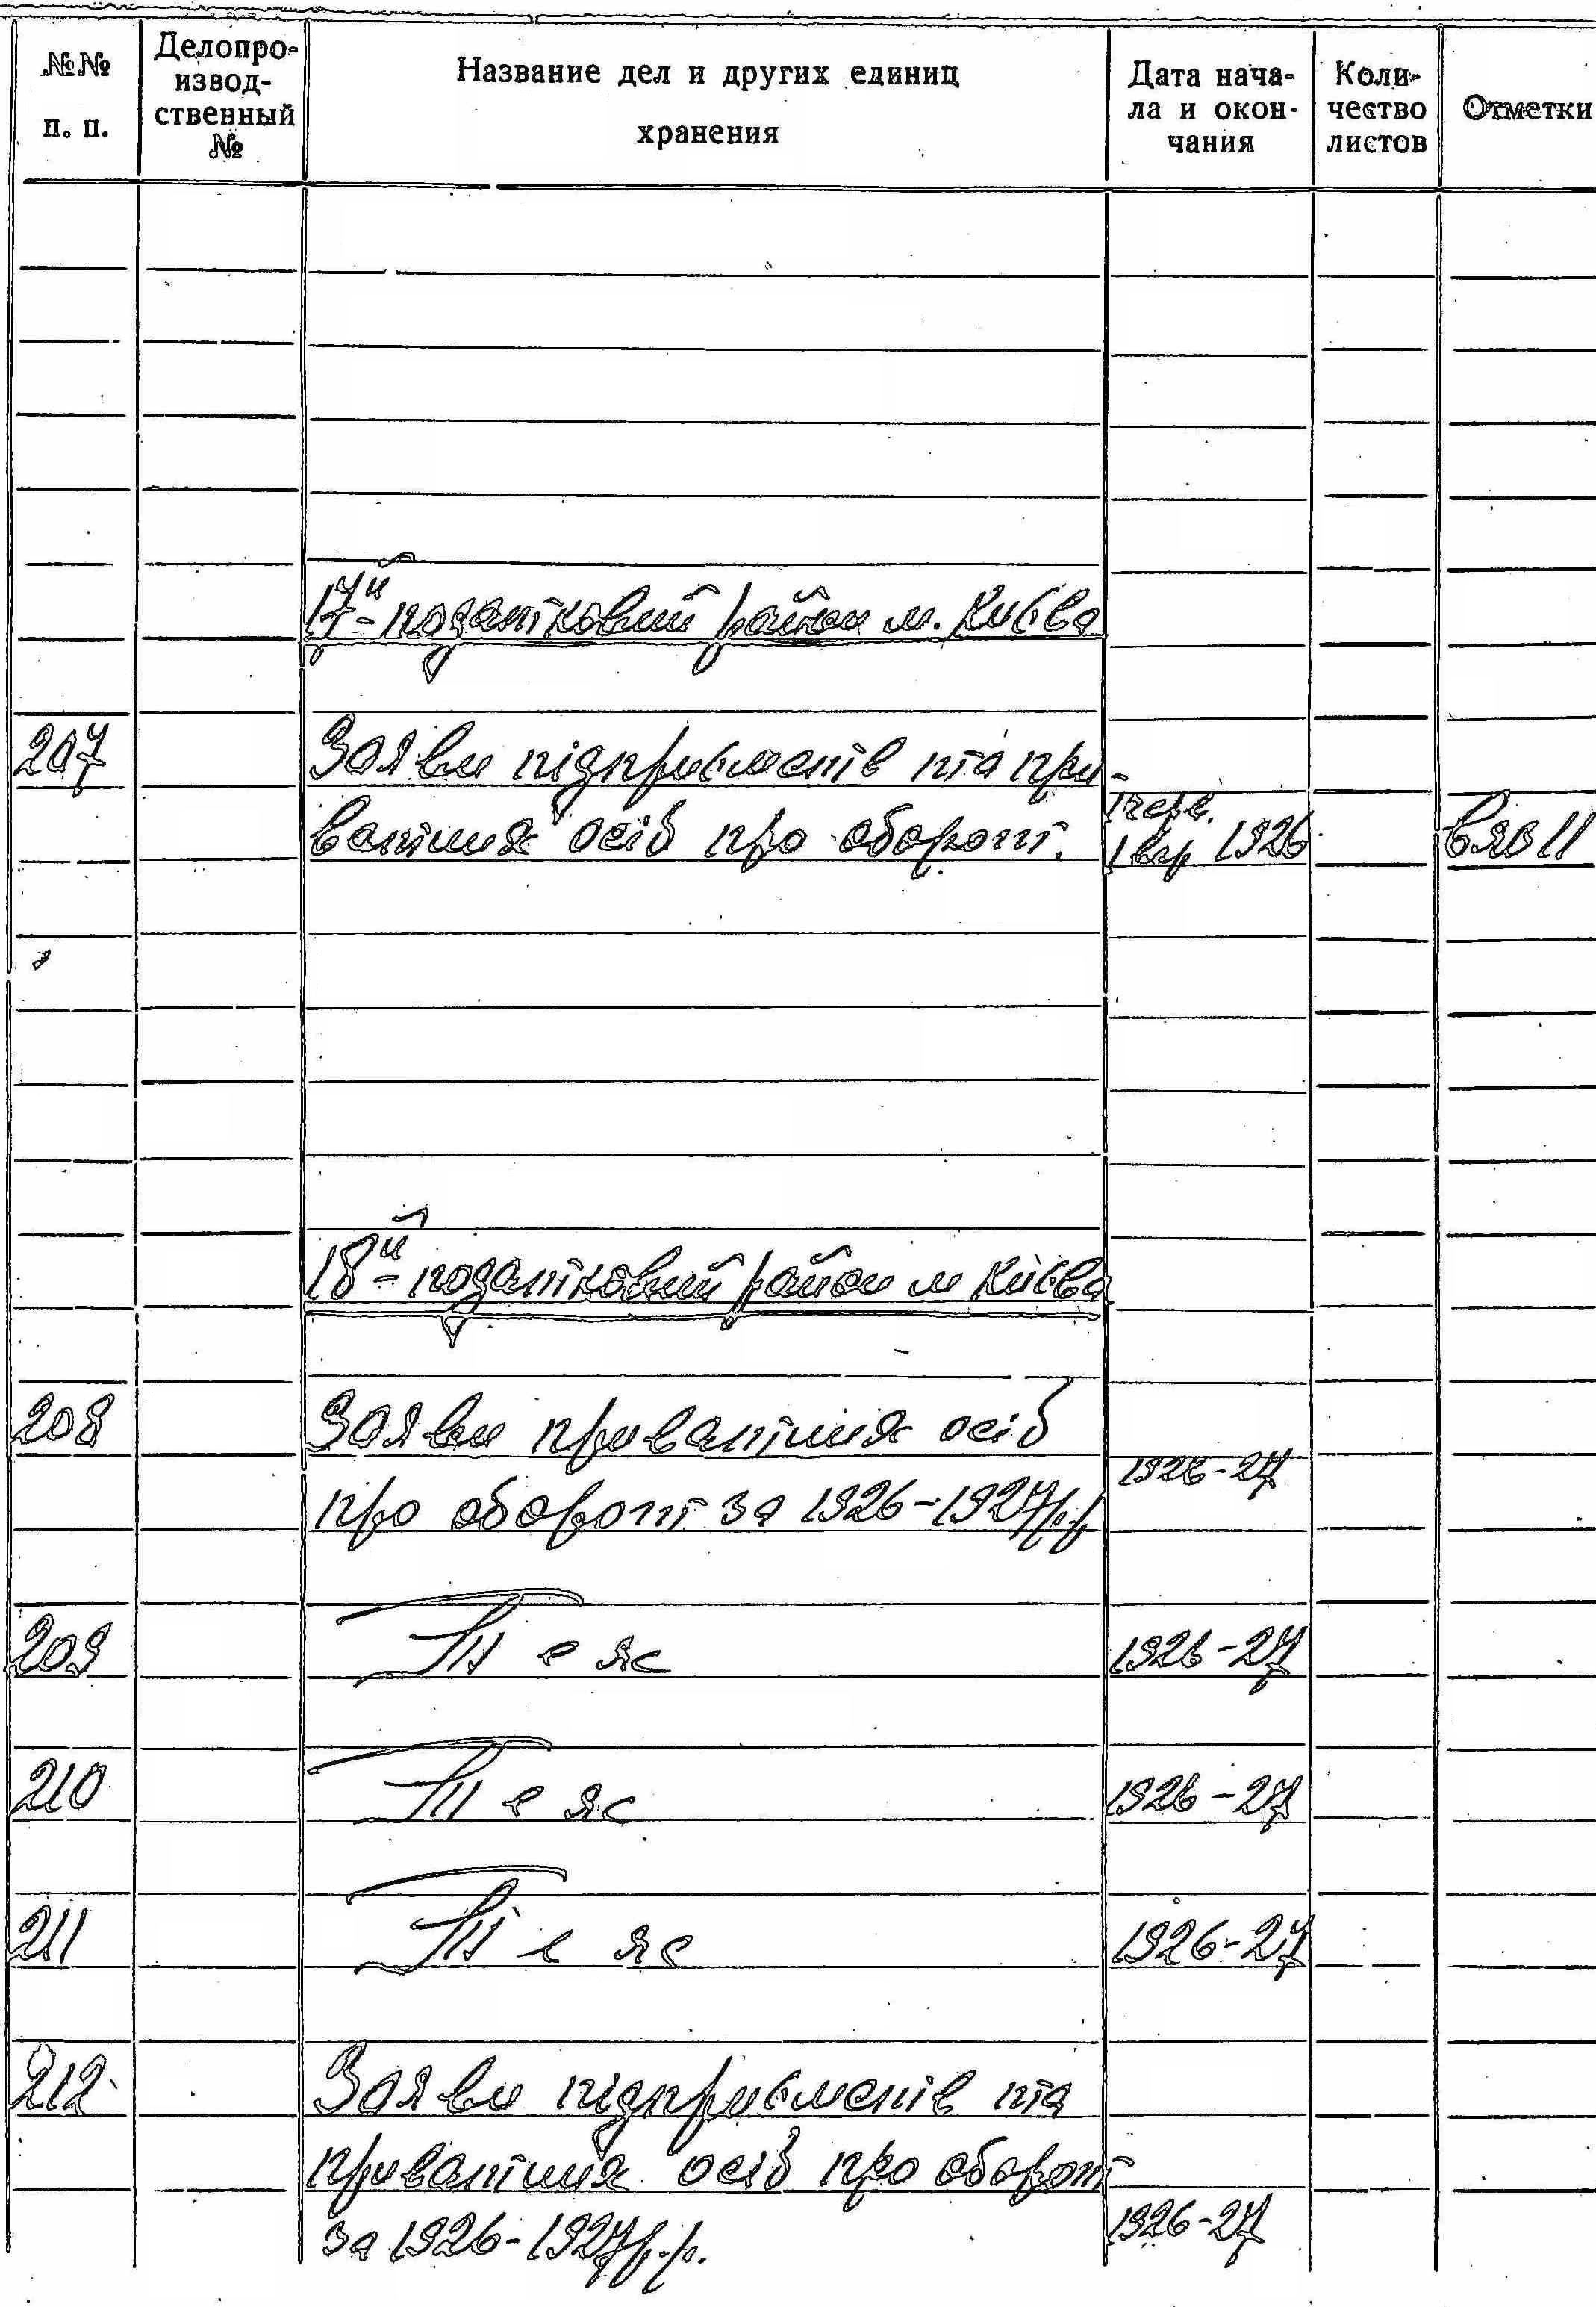 №№ п. п.
Делопро-
извод-
ственный
№
Название дел и других единиц
хранения
Дата нача-
ла и окон-
чания
Коли-
чество
листов
Отметки
17й податковий район м. Києва
207 Заяви підприємств та при-
ватних осіб про оборот. 1 черв. 1926
18й податковий район м Києва
208 Заяви приватних осіб
про оборот за 1926-1927 р.р. 1926-27
209 Те ж 1926-27
210 Те ж 1926-27
211 Те ж 1926-27
212 Заяви підприємств та
приватних осіб про оборот
за 1926-1927 р.р. 1926-27